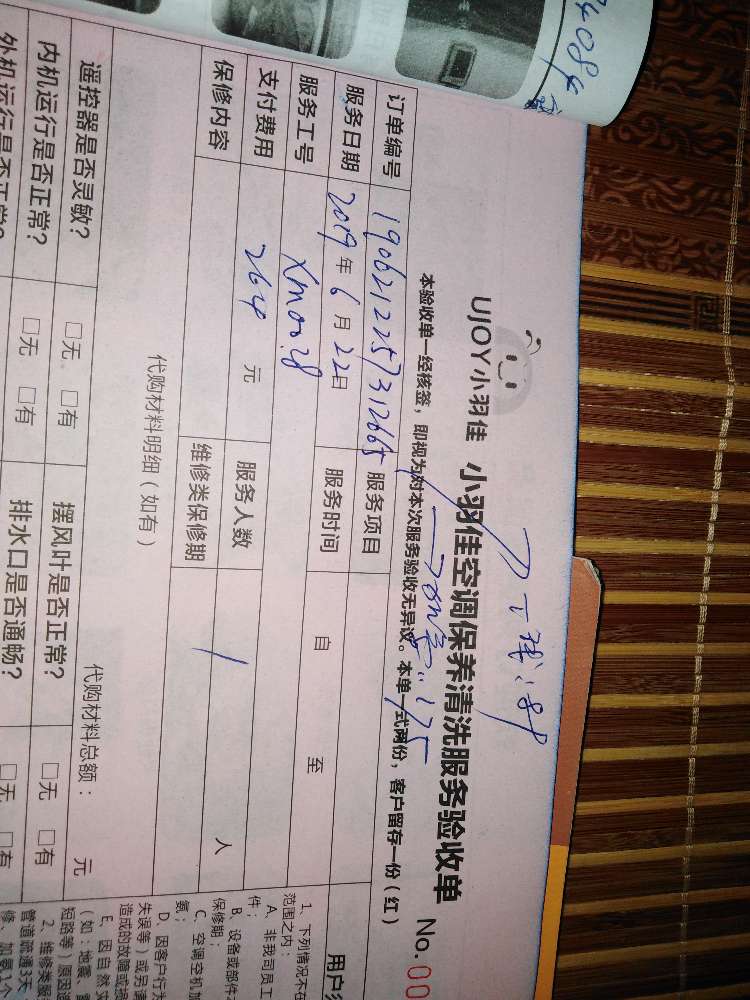 UJOY小羽佳 小羽佳空调保养清洗服务验收单 No.00
本验收单一经核签，即视为对本次服务验收无异议。本单一式两份，客户留存一份（红）
订单编号 1906212257312665 服务项目
服务日期 2019年6月22日 服务时间 自 至
服务工号 Xm0028
支付费用 264 元 服务人数 1 人
保修内容 维修类保修期
代购材料明细（如有） 代购材料总额： 元
遥控器是否灵敏？ □无 □有 摆风叶是否正常？ □无 □有
内机运行是否正常？ □无 □有 排水口是否通畅？ □无 □有
外机运行是否正常？
用户须
1、下列情况不在
范围之内：
A、非我司员工
件；
B、设备或部件
保修期；
C、空调空机加
氨；
D、因客户行为
失误等）或另请
造成的故障或损
E、因自然灾
（如：地震、雷
短路等）原因造
2、维修类服
管道疏通3天
修、加氨1个